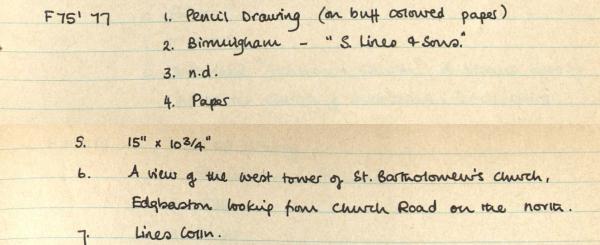 F75' 77 1. Pencil Drawing (on buff coloured paper)
2. Birmingham - "S. Lines & Sons."
3. n.d.
4. Paper
5. 15" x 10 3/4"
6. A view of the west tower of St. Bartholomew's church,
Edgbaston looking from Church Road on the north.
7. Lines Colln.